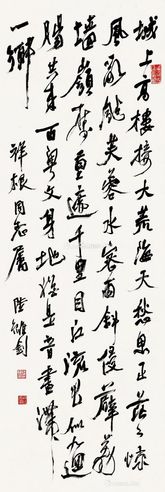 城上高樓接大荒海天愁思正茫々惊
風亂飐芙蓉水密雨斜侵薜荔
墙嶺樹重遮千里目江流曲似九迴
腸共来百粤文身地猶是音書滯
一鄉
祥根同志屬 陸維釗